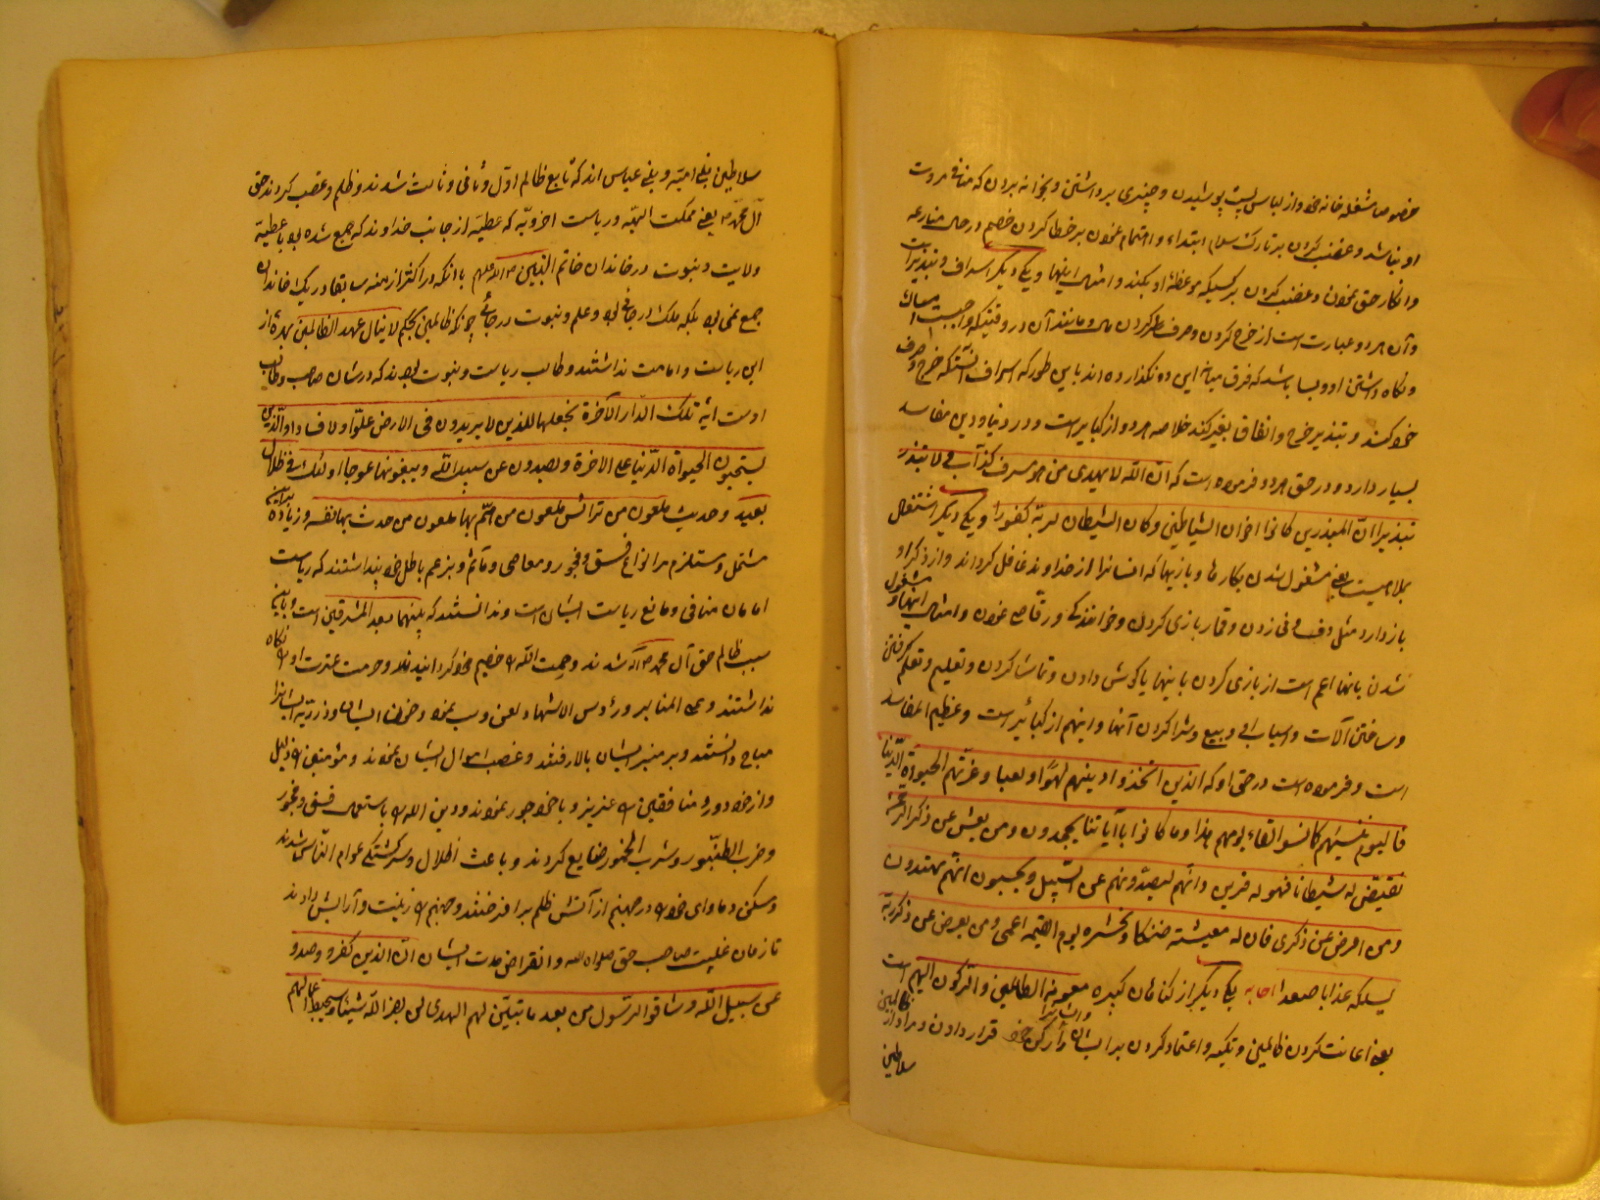 خصوصا مشغله خانه خود از لباس پست پوشیدن و چیزی برداشتن و بخانه بردن که منافی مروت
او نباشد و غضب کردن بر تارک سلام ابتداء و اهتمام نمودن بر خطا کردن خصم در حال منازعه
و انکار حق نمودن و غضب کردن بر کسیکه موعظهٔ او بکند و امثال اینها و یکی دیگر اسراف و تبذیر است
و آن هر دو عبارت است از خرج کردن و صرف کردن مال و مانند آن در وقتیکه واجب است امساک
و نگاه داشتن او و بسا باشد که فرق میان این دو گذارده اند باین طور که اسراف آنستکه خرج و صرف
خود کند و تبذیر خرج و انفاق بغیر کند خلاصه هر دو از کبایر است و در دنیا و دین مفاسد
بسیار دارد و در حق هر دو فرموده است که ان الله لا یهدی من هو مسرف کذاب و لا تبذر
تبذیرا ان المبذرین کانوا اخوان الشیاطین و کان الشیطان لربه کفورا و یکی دیگر اشتغال
بملاهیست یعنی مشغول شدن بکارها و بازیها که انسانرا از خداوند غافل کرداند و از ذکر او
باز دارد مثل دف و نی زدن و قمار بازی کردن و خوانندگی و رقاصی نمودن و امثال اینها و مشغول
شدن بانها اعم است از بازی کردن باینها یا گوش دادن و تماشا کردن و تعلیم و تعلم گرفتن
و ساختن آلات و اسباب او و بیع و شرا کردن آنها و اینهم از کبائر است و عظیم المفاسد
است و فرموده است در حق او که الذین اتخذوا دینهم لهوا و لعبا و غرتهم الحیوة الدنیا
فالیوم ننسیهم کما نسوا لقاء یومهم هذا و ما کانوا بآیاتنا یجحدون و من یعش عن ذکر الرحمن
نقیض له شیطانا فهو له قرین و انهم لیصدونهم عن السبیل و یحسبون انهم مهتدون
و من اعرض عن ذکری فان له معیشة ضنکا و نحشره یوم القیمه اعمی و من یعرض عن ذکر ربه
یسلکه عذابا صعدا یکی دیگر از گناهان کبیره معونة الظالمین و الرکون الیهم است
یعنی اعانت کردن ظالمین و تکیه و اعتماد کردن بر ایشان و ایشانرا رکن خود قرار دادن و مراد از ظالمین
سلاطین
سلاطین بنی امیه و بنی عباس اند که تابع ظالم اول و ثانی و ثالث شدند و ظلم و غصب کردند حق
آل محمد را یعنی مملکت الهیه و ریاست اخرویه که عطیه از جانب خداوند که جمع شده بود با عطیه
ولایت و نبوت در خاندان خاتم النبیین با آنکه در اکثر ازمنه سابقا در یک خاندان
جمع نمی بود بلکه ملک در جائی بود و علم و نبوت در جائی چونکه ظالمین بحکم لا ینال عهد الظالمین بهره از
این ریاست و امامت نداشتند و طالب ریاست و نبوت بودند که در شان صاحب و طالب
اوست ایه تلک الدار الآخرة نجعلها للذین لا یریدون فی الارض علوا و لا فسادا و الذین
یستحبون الحیوة الدنیا علی الاخرة و یصدون عن سبیل الله و یبغونها عوجا اولئک فی ظلال
بعید و حدیث ملعون من ترأس ملعون من هم بها ملعون من حدث بها نفسه و زیاده بر این
مشتمل و مستلزم مر انواع فسق و فجور و معاصی و مآثم و بزعم باطل خود پنداشتند که ریاست
امامان منافی و مانع ریاست ایشان است و ندانستند که بینهما بعد المشرقین است و باین
سبب ظالم حق آل محمد شدند و حجت الله را خصم خود گردانیدند و حرمت عترت او را نگاه
نداشتند و علی المنابر و رؤس الاشهاد لعن و سب نمودند و خون ایشان و ذریه ایشانرا
مباح دانستند و بر منبر ایشان بالا رفتند و غصب اموال ایشان نمودند و مؤمنین را ذلیل
و از خود دور و منافقین را عزیز و با خود جور نمودند و دین الله را باستعمال فسق و فجور
و ضرب الطنبور و شرب الخمور ضایع کردند و باعث اضلال و سرگشتگی عوام الناس شدند
و مسکن و ماوای خود را در جهنم از آتش ظلم بر افروختند و جهنم را زینت و آرایش دادند
تا زمان غیبت صاحب حق و انقراض مدت ایشان ان الذین کفروا و صدوا
عن سبیل الله و شاقوا الرسول من بعد ما تبین لهم الهدی لن یضروا الله شیئا و سیحبط اعمالهم